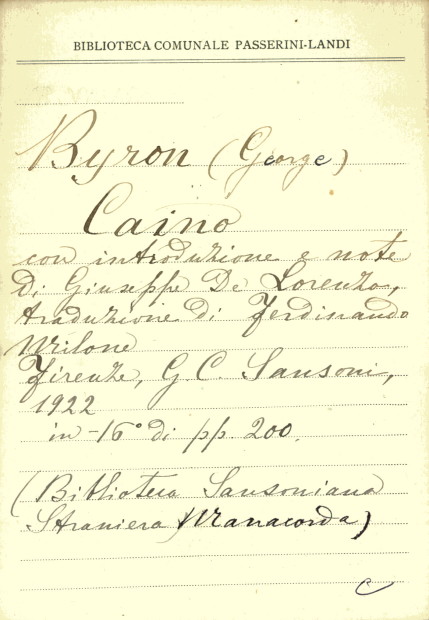 BIBLIOTECA COMUNALE PASSERINI-LANDI
Byron (George)
Caino
con introduzione e note
di Giuseppe De Lorenzo,
traduzione di Ferdinando
Milone
Firenze, G. C. Sansoni,
1922
in-16° di pp. 200.
(Biblioteca Sansoniana
Straniera Manacorda)
C